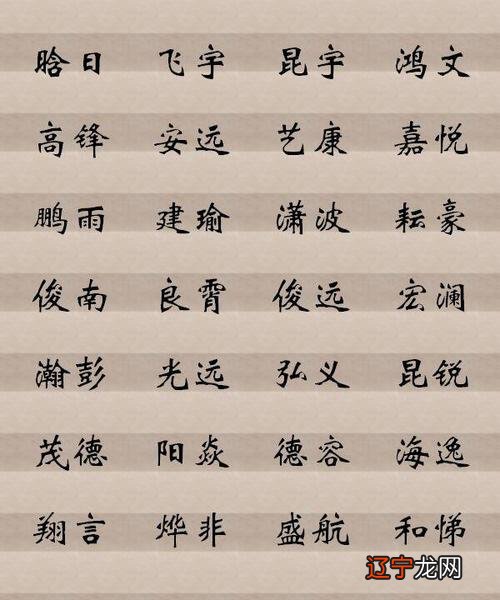 晗日 飞宇 昆宇 鸿文
高锋 安远 艺康 嘉悦
鹏雨 建瑜 潇波 耘豪
俊南 良霄 俊远 宏澜
瀚彭 光远 弘义 昆锐
茂德 阳焱 德容 海逸
翔言 烨非 盛航 和悌
辽宁龙网